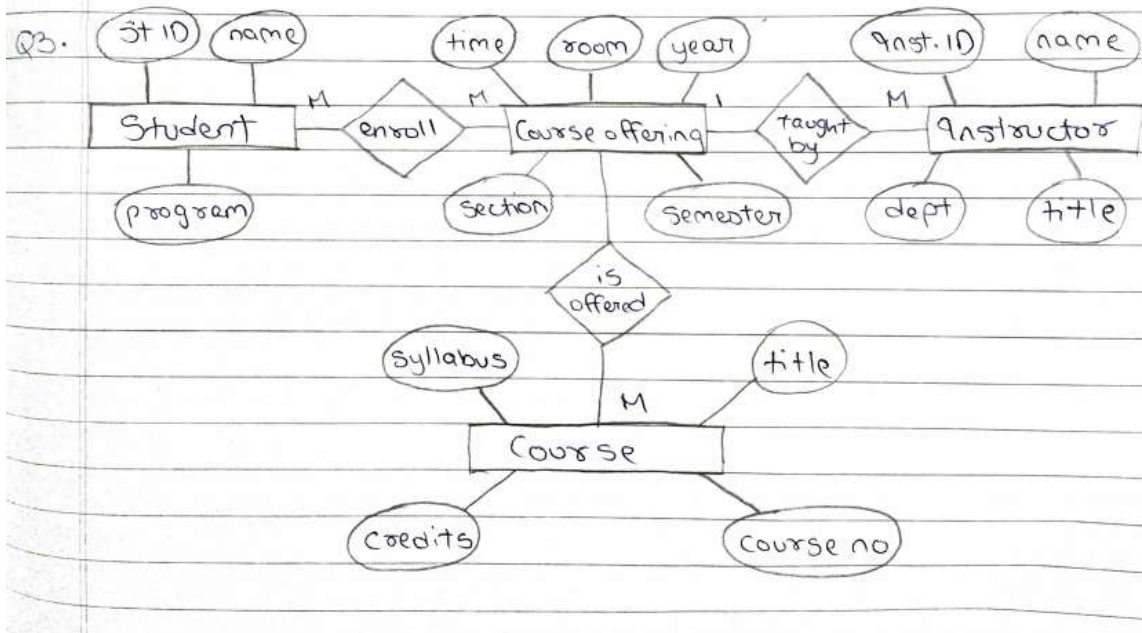 Q3.
St ID name time room year Inst. ID name
M M 1 M
Student enroll Course offering taught by Instructor
program section semester dept title
is offered
syllabus title
M
Course
credits course no